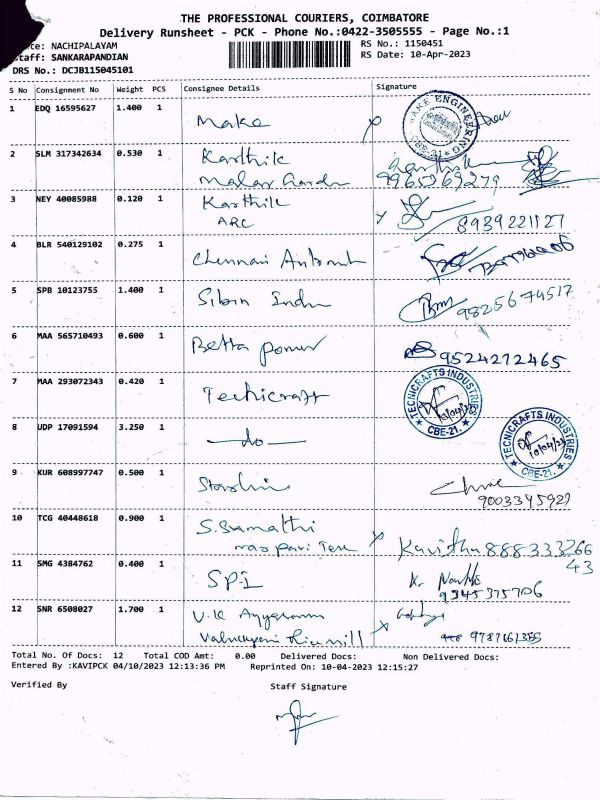 THE PROFESSIONAL COURIERS, COIMBATORE
Delivery Runsheet - PCK - Phone No.:0422-3505555 - Page No.:1
NACHIPALAYAM RS No.: 1150451
Staff: SANKARAPANDIAN RS Date: 10-Apr-2023
DRS No.: DCJB115045101
S No Consignment No Weight PCS Consignee Details Signature
1 EDQ 16595627 1.400 1 Make MAKE ENGINEERING CBE-21
2 SLM 317342634 0.530 1 Karthik
Malar 9965269279
3 NEY 40085988 0.120 1 Karthik
ARC 8939221127
4 BLR 540129102 0.275 1 Chennai
5 SPB 10123755 1.400 1 Sibin Indu 9825674517
6 MAA 565710493 0.600 1 Betta Power 9524272465
7 MAA 293072343 0.420 1 Techicraft TECNICRAFTS INDUSTRIES CBE-21. 10/04/23
8 UDP 17091594 3.250 1 -do- TECNICRAFTS INDUSTRIES CBE-21. 10/04/23
9 KUR 608997747 0.500 1 9003345929
10 TCG 40448618 0.900 1 S. Sumathi
Kavitha 88833326643
11 SMG 4384762 0.400 1 SPI K.
9345375706
12 SNR 6508027 1.700 1 V.K
9787161355
Total No. Of Docs: 12 Total COD Amt: 0.00 Delivered Docs: Non Delivered Docs:
Entered By :KAVIPCK 04/10/2023 12:13:36 PM Reprinted On: 10-04-2023 12:15:27
Verified By Staff Signature